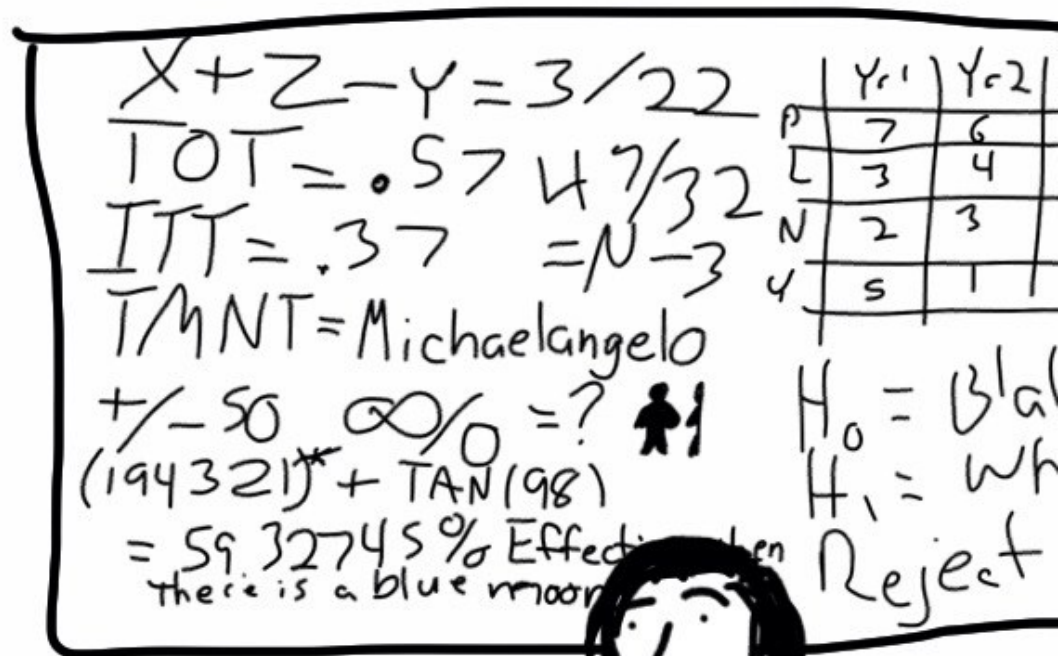 X + Z - Y = 3/22
TOT = .57 47/32
ITT = .37 = N - 3
TMNT = Michaelangelo
+/- 50 ∞/0 = ?
(194321)** + TAN(98)
= 59.32745% Effecti hen
there is a blue moon
Yr 1 Yr 2
P 7 6
L 3 4
N 2 3
Y 5 1
H₀ = Bla
H₁ = Wh
Reject